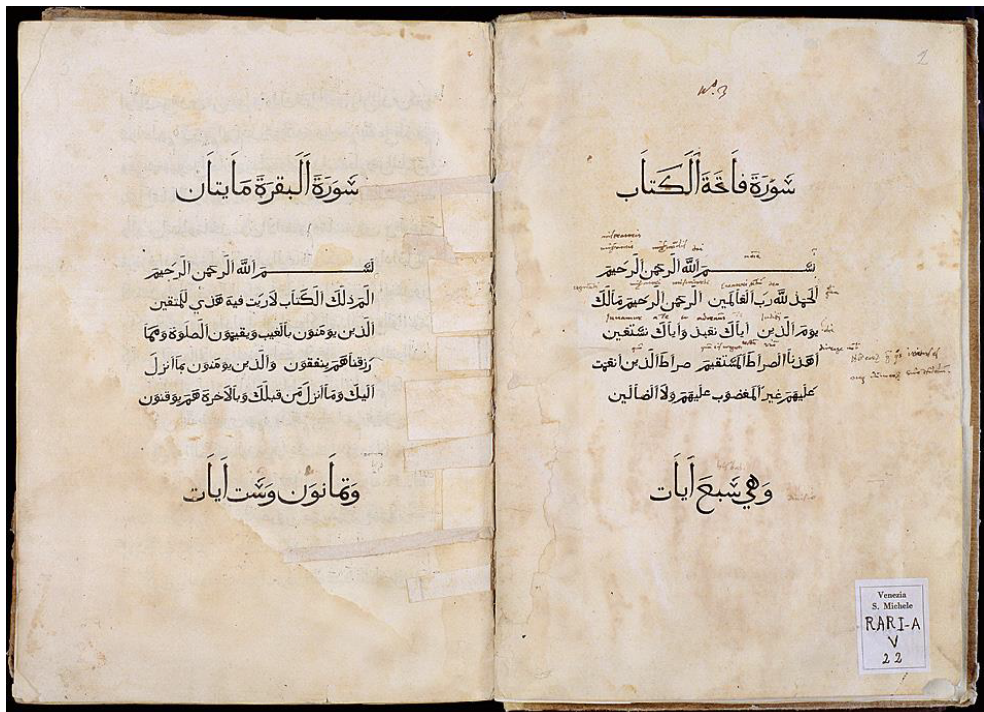 2
Nº. 3
سورة فاتحة الكتاب
بسم الله الرحمن الرحيم
الحمد لله رب العالمين الرحمن الرحيم مالك
يوم الدين اياك نعبد واياك نستعين
اهدنا الصراط المستقيم صراط الذين انعمت
عليهم غير المغضوب عليهم ولا الضالين
وهي سبع ايات
Venezia
S. Michele
RARI-A
V
22
سورة البقرة مايتان
بسم الله الرحمن الرحيم
الم ذلك الكتاب لا ريب فيه هدي للمتقين
الذين يومنون بالغيب ويقيمون الصلوة ومما
رزقناهم ينفقون والذين يومنون بما انزل
اليك وما انزل من قبلك وبالاخرة هم يوقنون
وثمانون وست ايات